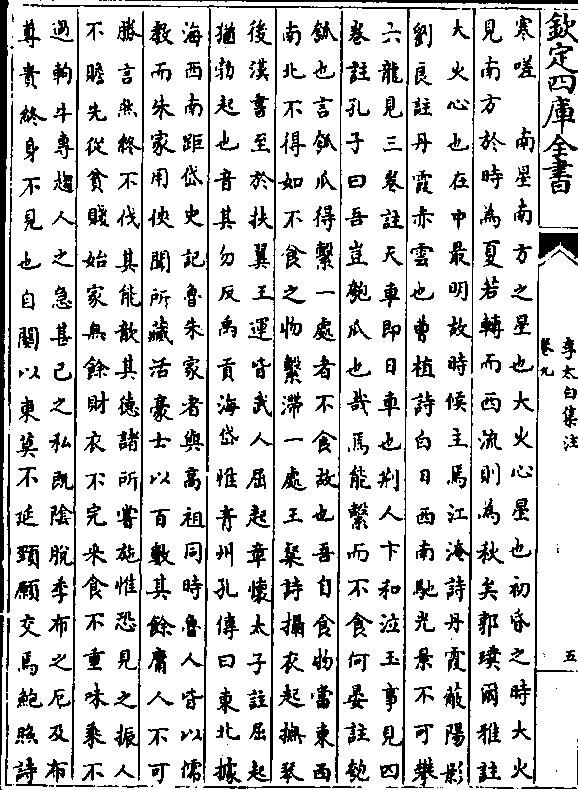 欽定四庫全書
李太白集注
卷九
五
寒嗟　南星南方之星也大火心星也初昏之時大火
見南方於時為夏若轉而西流則為秋矣郭璞爾雅註
大火心也在中最明故時候主焉江淹詩丹霞蔽陽影
劉良註丹霞赤雲也曹植詩白日西南馳光景不可攀
六龍見三卷註天車即日車也荊人卞和泣玉事見四
卷註孔子曰吾豈匏瓜也哉焉能繫而不食何晏註匏
瓠也言瓠瓜得繫一處者不食故也吾自食物當東西
南北不得如不食之物繫滯一處王粲詩攝衣起撫琴
後漢書至於扶翼王運皆武人屈起章懷太子註屈起
猶勃起也音其勿反禹貢海岱惟青州孔傳曰東北據
海西南距岱史記魯朱家者與高祖同時魯人皆以儒
教而朱家用俠聞所藏活豪士以百數其餘庸人不可
勝言然終不伐其能歆其德諸所嘗施惟恐見之振人
不贍先從貧賤始家無餘財衣不完采食不重味乘不
過軥牛專趨人之急甚己之私既陰脫季布之厄及布
尊貴終身不見也自關以東莫不延頸願交焉鮑照詩